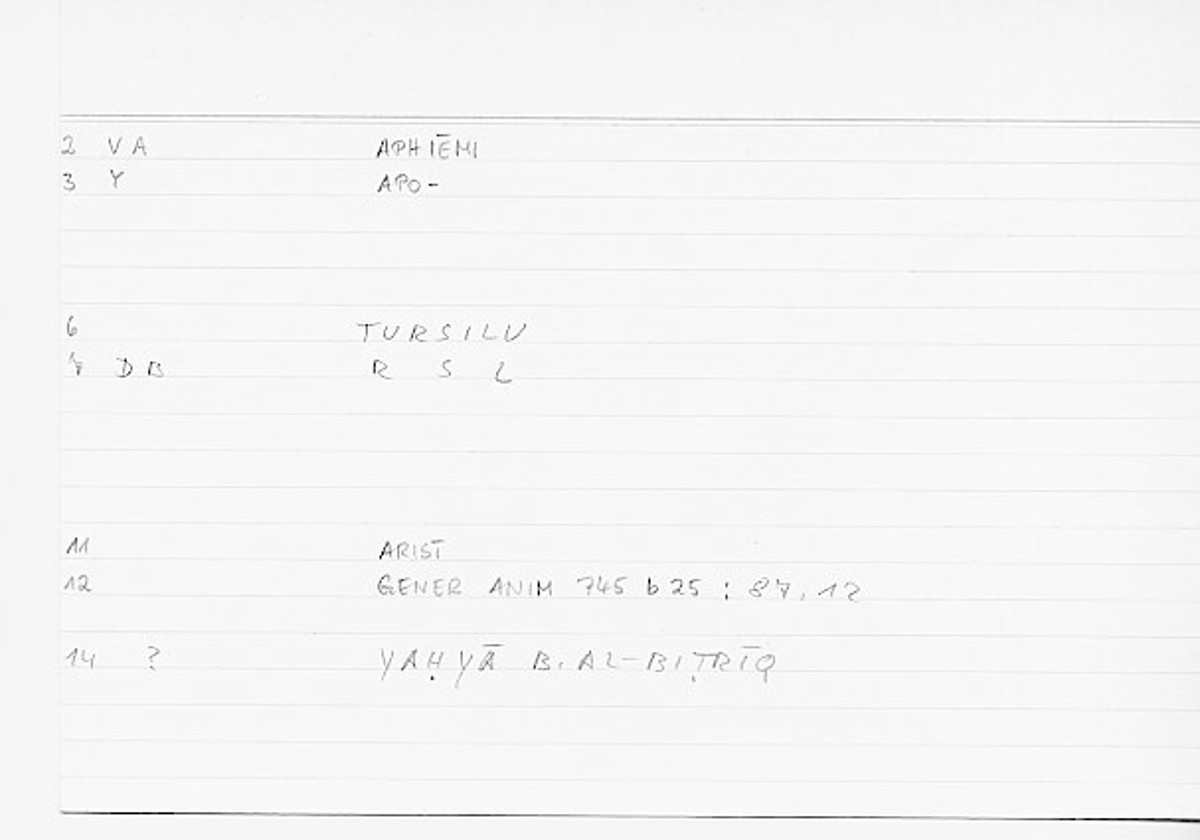 2 V A APHIĒMI
3 Y APO-
6 TURSILU
7 D B R S L
11 ARIST
12 GENER ANIM 745 b 25 : 87, 12
14 ? YAḤYĀ B. AL-BIṬRĪQ